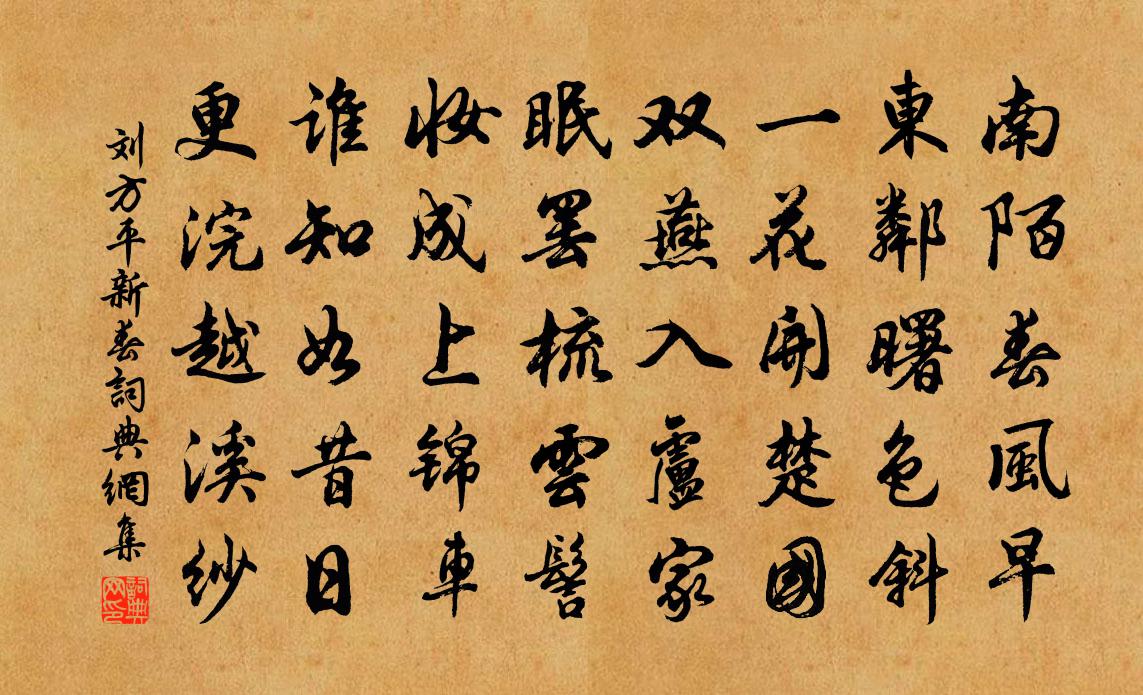 南陌春風早
東鄰曙色斜
一花開楚國
双燕入盧家
眠罢梳雲髻
妆成上锦車
谁知如昔日
更浣越溪紗
刘方平新春詞典網集
詞典网印